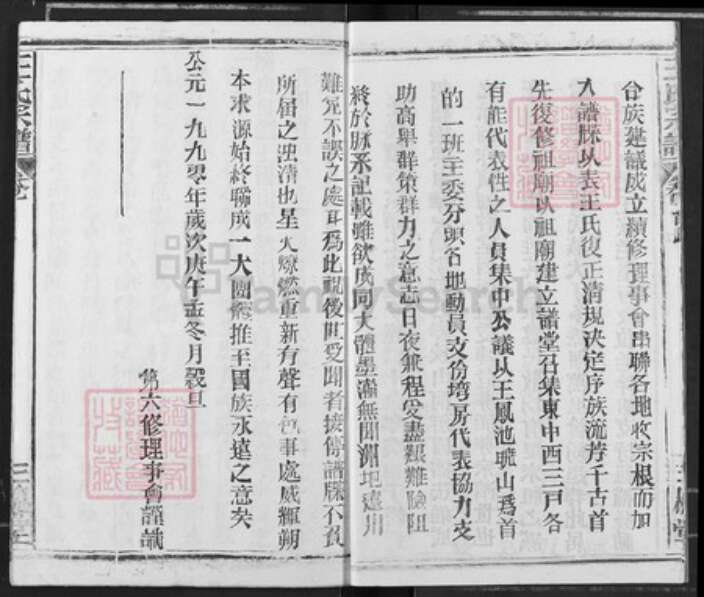 合族建議成立續修理事會出聯各地收宗根而加
入譜牒以表王氏復正清規決定序族流芳千古首
先復修祖廟以祖廟建立譜堂召集東中西三戶各
有能代表性之人員集中公議以王鳳池 山為首
的一班主委分赴各地動員支份 房代表協力支
助高舉群策群力之意志日夜兼程受盡艱難險阻
終於脉系記載雖欲成同大體墨滿無聞 遠
難免不誤之處耳為此視後旺受聞者接傳譜牒不負
所屆之 清也星火燎燃重新有聲有色事處威輝朔
本求源始終聯成一大團體推至國族永遠之意矣
公元一九九零年歲次庚午孟冬月穀旦
第六修理事會謹識
王氏宗譜
卷
三
三槐堂
FamilySearch